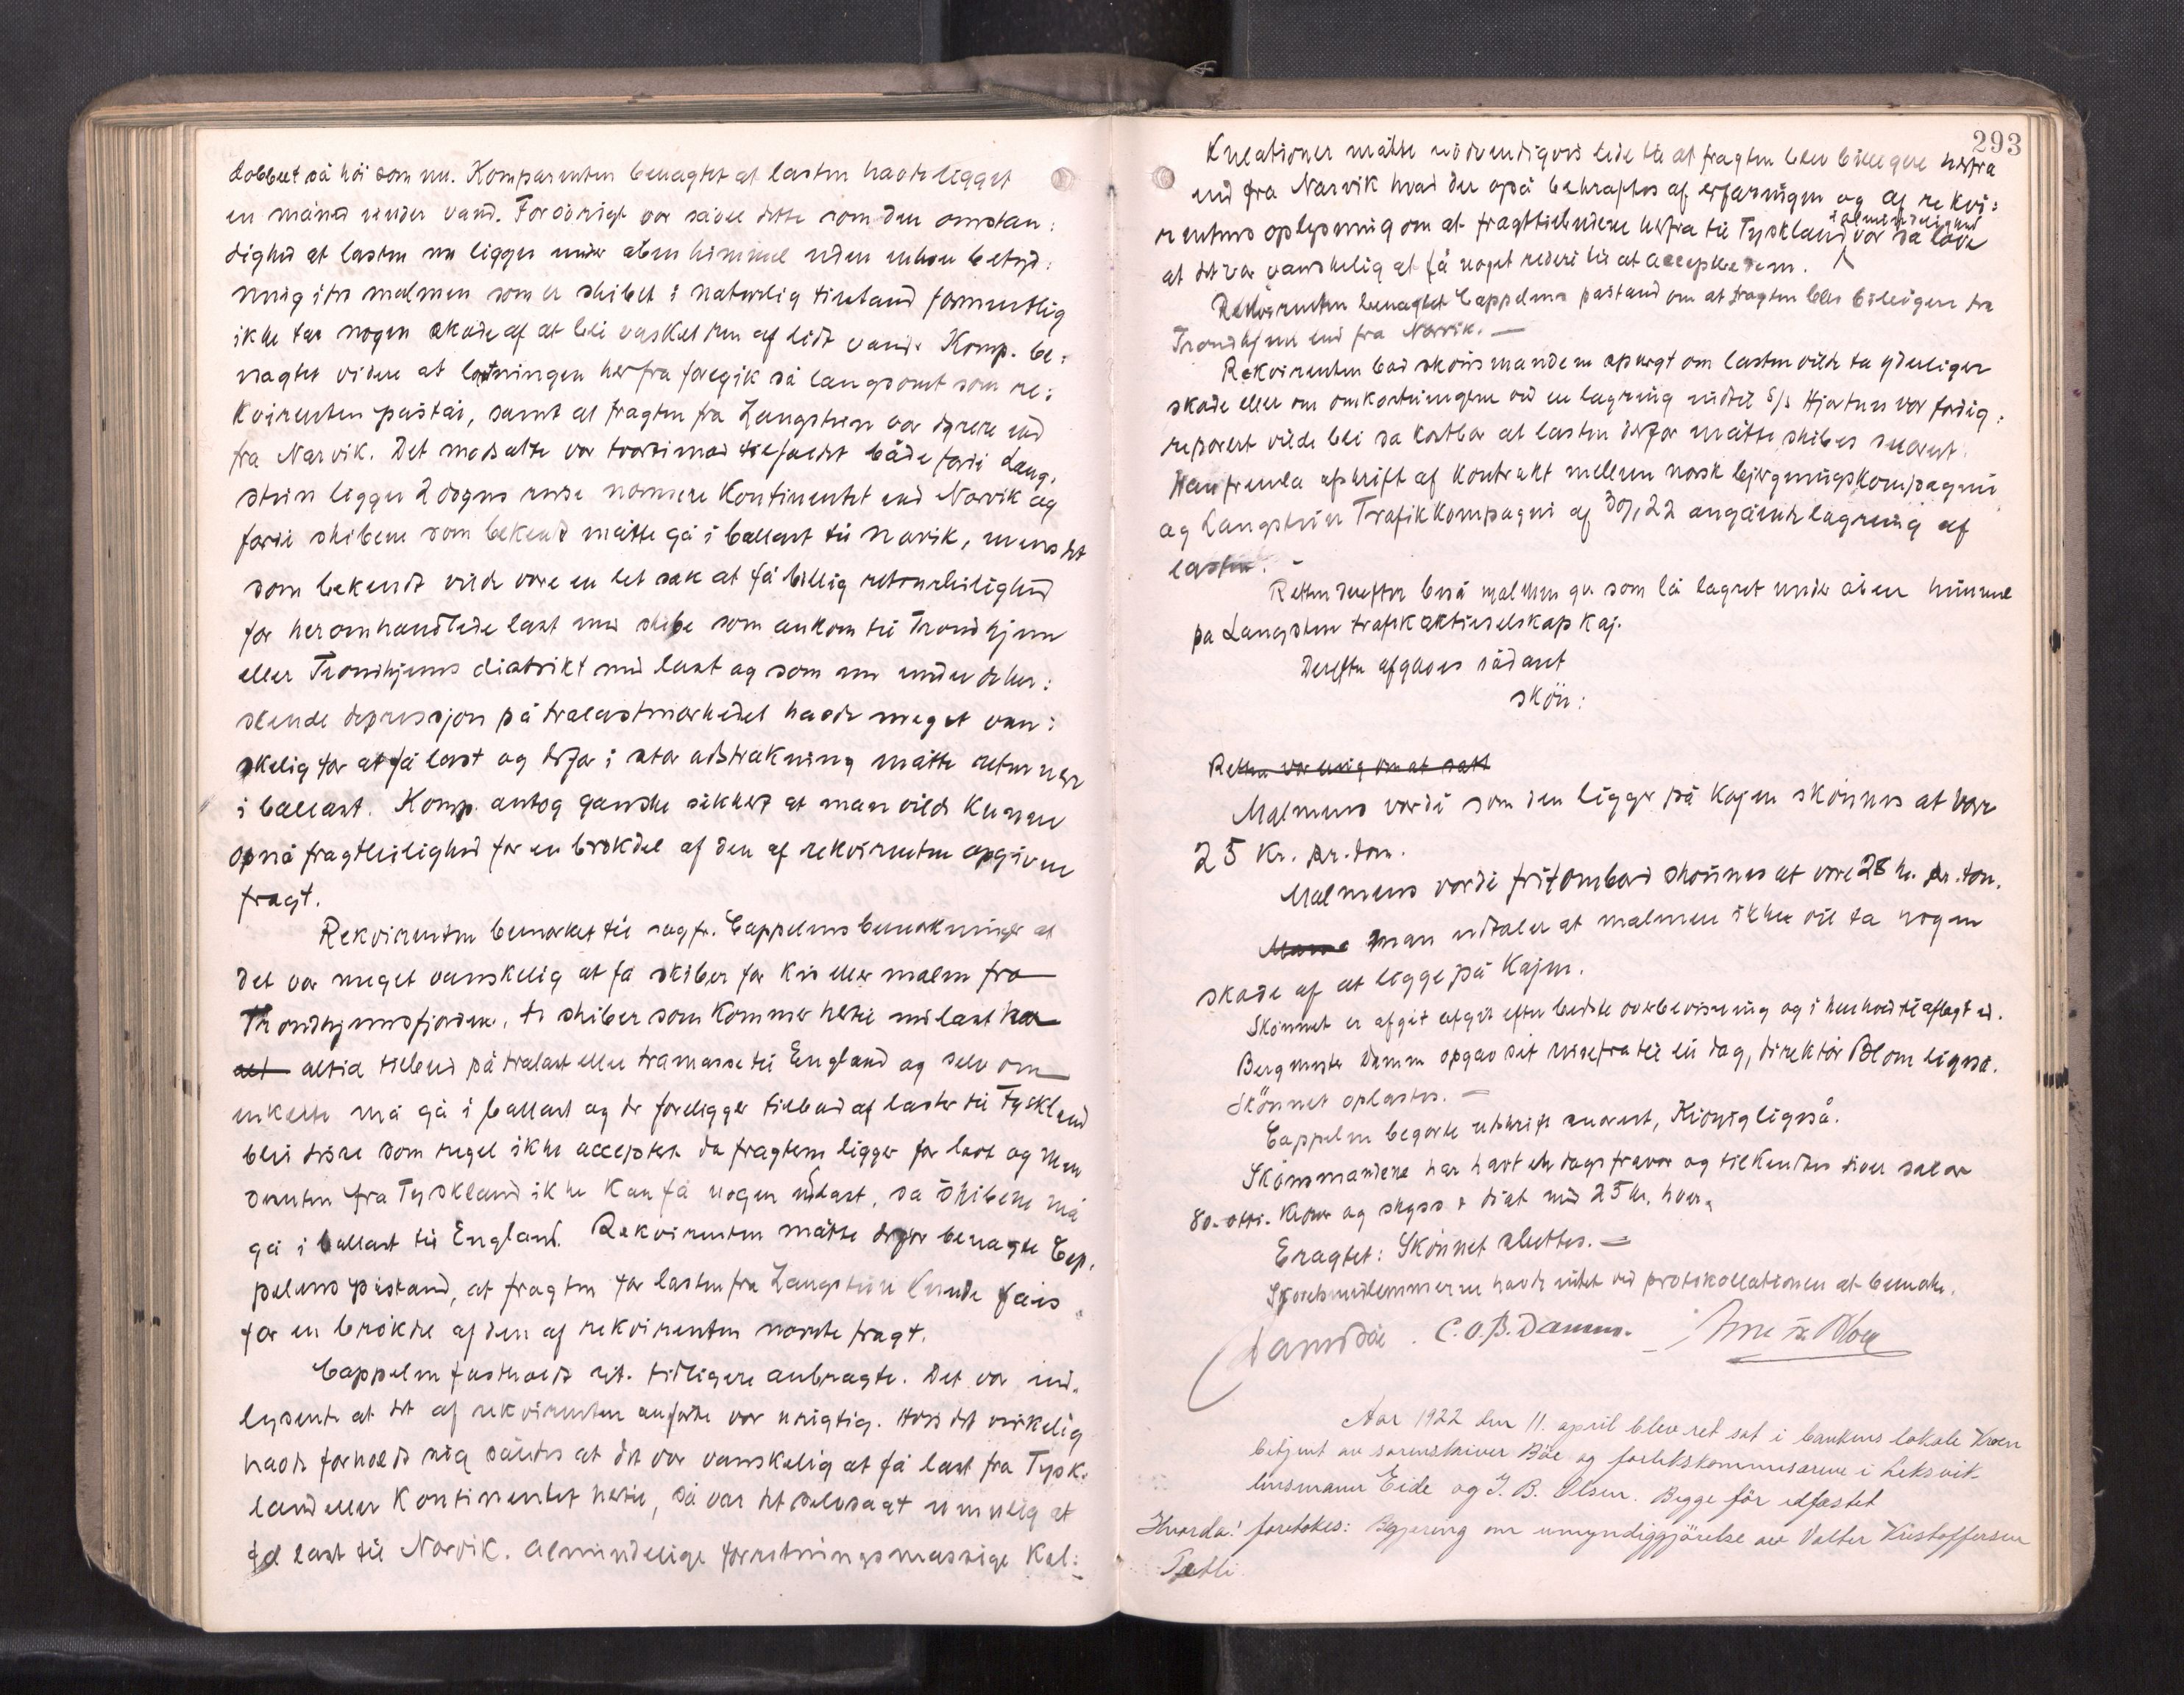 dobbelt så höi som nu. Komparenten benagtet at lasten havde ligget
en måned under vand. Forövrigt var såvel dette som den omstæn:
dighed at lasten nu ligger under åben himmel uden enhver betyd:
ning idet malmen som er skibet i naturlig tilstand formentlig
ikke tar nogen skade af at bli vasket ren af lidt vand. Komp. be:
nagtet videre at lastningen herfra foregik så langsomt som re:
kvirenten påstår, samt at fragten fra Langstein var dyrere end
fra Narvik. Det modsatte var tvertimod tilfældet både fordi Lang,
stein ligger 2 dögns reise nærmere Kontinentet end Narvik og
fordi skibene som bekendt måtte gå i ballast til Narvik, mens det
som bekendt vilde være en let sak at få billig retourleilighed
for heromhandlede last med skibe som ankom til Trondhjem
eller Trondhjems distrikt med last og som nu under den her:
skende depression på trælastmarkedet havde meget van:
skelig for at få last og derfor i stor utstrækning måtte returnere
i ballast. Komp. antog ganske sikkert at man vilde kunne
opnå fragtleilighed for en brökdel af den af rekvirenten opgivne
fragt.
Rekvirenten bemærket til sagf. Cappelens bemærkninger at
det var meget vanskelig at få skiber for kis eller malm fra
Trondhjemsfjorden, de skiber som kommer hertil med last har
altid tilbud på trælast eller træmasse til England og selv om
enkelte må gå i ballast og der foreligger tilbud af laster til Tyskland
blir disse som regel ikke acceptert da fragten ligger for lavt og man
desuten fra Tyskland ikke kan få nogen utlast, så skibene må
gå i ballast til England. Rekvirenten måtte derfor benagte Cap,
pelens påstand, at fragten for lasten fra Langstein kunde fåes
for en brökdel af den af rekvirenten nævnte fragt.
Cappelen fastholdt sit tidligere anbragte. Det var ind,
lysende at det af rekvirenten anförte var urigtig. Hvis det virkelig
havde forholdt sig således at det var vanskelig at få last fra Tysk:
land eller Kontinentet hertil, så var det selvsagt umulig at
få last til Narvik. Almindelige forretningsmæssige Kal:
293
kulationer måtte nödvendigvis lede til at fragten blev billigere herfra
end fra Narvik hvad der også bekræftes af erfaringen og af rekvi:
rentens oplysning om at fragttilbudene herfra til Tyskland var så lave
almindelighed
at det var vanskelig at få noget rederi til at acceptere dem.
Rekvirenten benagtet Cappelens påstand om at fragten blev billigere fra
Trondhjem end fra Narvik. —
Rekvirenten bad skönsmændene spurgt om lasten vilde ta yderligere
skade eller om omkostningene ved en lagring indtil S/S Hjortnes var færdig:
reparert vilde bli så kostbar at lasten derfor måtte skibes snarest.
Han fremla afskrift af kontrakt mellem norsk bjergningskompagni
og Langstein Trafikkompagni af 30/1 22 angående lagring af
lasten. -
Retten derefter beså malmen som lå lagret under åben himmel
på Langstein trafikaktieselskaps kaj.
Derefter afgaves sådant
skön:
Retten var enig om at
Malmens værdi som den ligger på kajen skönnes at være
25 Kr. pr. ton.
Malmens værdi frit ombord skönnes at være 28 kr. pr. ton.
Man udtaler at malmen ikke vil ta nogen
skade af at ligge på kajen.
Skönnet er afgit efter bedste overbevisning og i henhold til aflagt ed.
Bergmester Damm opgav sit reisefravær til en dag, direktör Blom ligeså.
Skönnet oplæstes. —
Cappelen begærte utskrift snarest, Kiönig ligeså.
Skönsmændene har havt en dags fravær og tilkendtes hver salær
80 - otti - kroner og skyss + diæt med 25 kr. hver.
Eragtet: Skönnet sluttes. —
Skönsmedlemmerne havde intet ved protokollationen at bemærke.
C. O. B. Damm.
Aar 1922 den 11. april blev ret sat i bankens lokale Kroen
betjent av sorenskriver Böe og forlikskommisærene i Leksvik
lensmann Eide og J. B. Olsen. Begge för edfæstet
Hvorda! foretokes: Begjering om umyndiggjörelse av Valter Kristoffersen